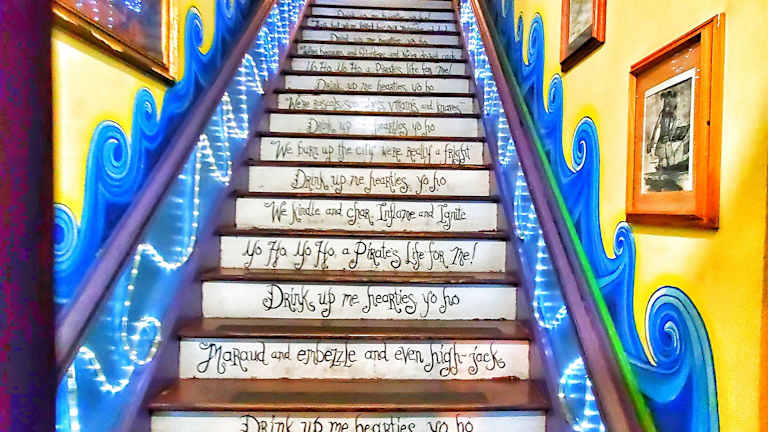 Drink up me hearties yo ho
Drink up me hearties yo ho
Yo Ho, Yo Ho, a Pirate's life for Me!
Drink up me hearties yo ho
We're rascals, villains and knaves
Drink up me hearties yo ho
We burn up the city, we're really a fright
Drink up me hearties, yo ho
We kindle and char, Inflame and Ignite
Yo Ho, Yo Ho, a Pirate's life for Me!
Drink up me hearties yo ho
Maraud and embezzle and even high-jack
Drink up me hearties yo ho